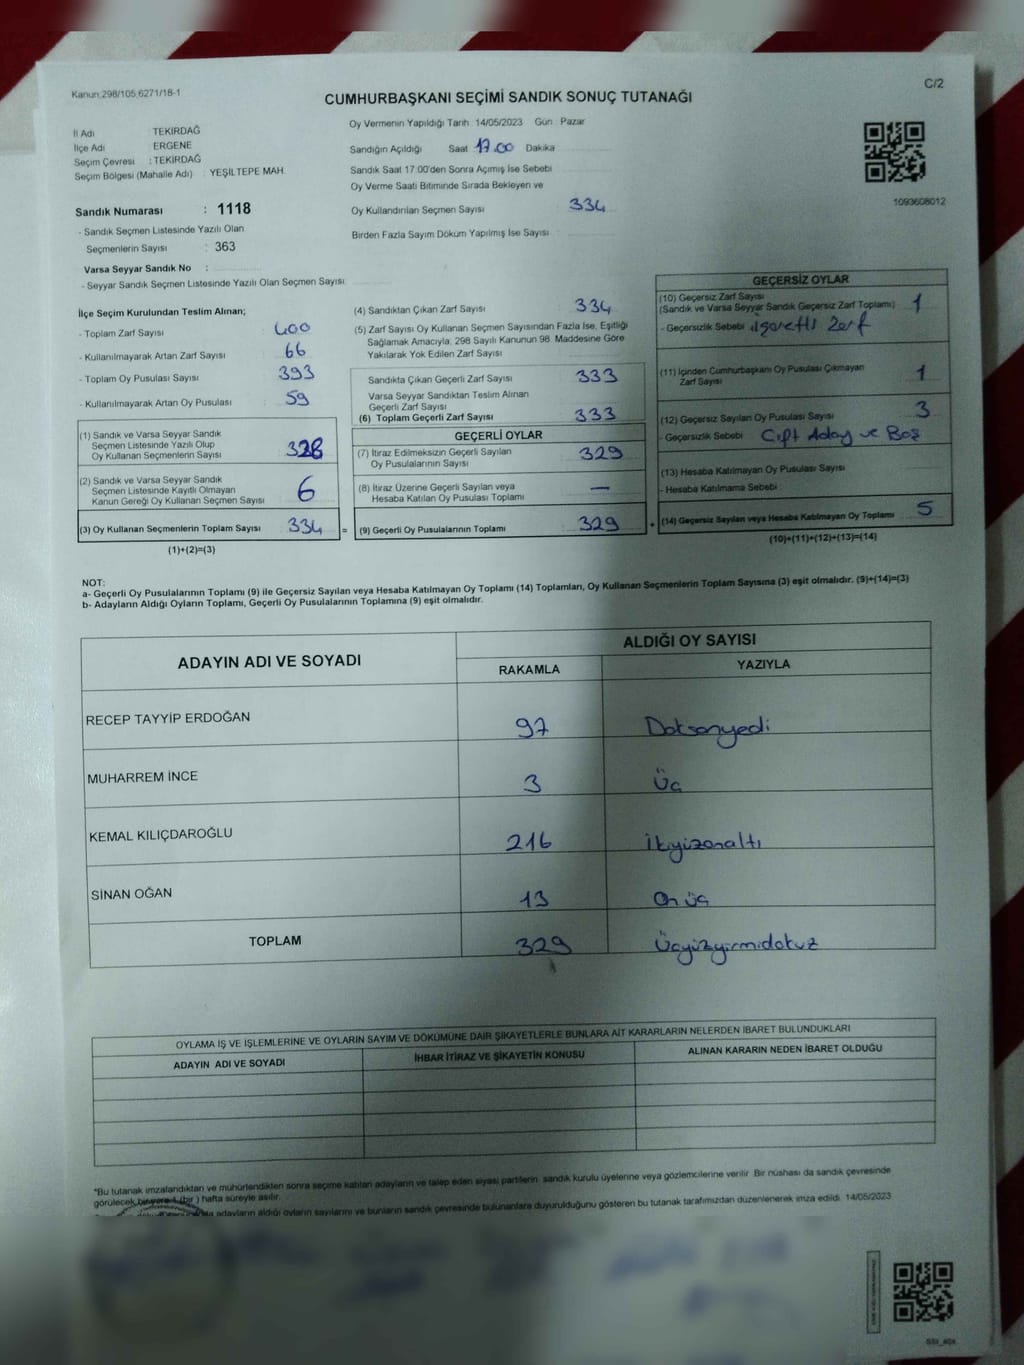 Kanun:298/105,6271/18-1
C/2
CUMHURBAŞKANI SEÇİMİ SANDIK SONUÇ TUTANAĞI
İl Adı TEKİRDAĞ
İlçe Adı ERGENE
Seçim Çevresi : TEKİRDAĞ
Seçim Bölgesi (Mahalle Adı) : YEŞİLTEPE MAH.
Sandık Numarası : 1118
- Sandık Seçmen Listesinde Yazılı Olan
Seçmenlerin Sayısı : 363
Varsa Seyyar Sandık No :
- Seyyar Sandık Seçmen Listesinde Yazılı Olan Seçmen Sayısı:
Oy Vermenin Yapıldığı Tarih : 14/05/2023 Gün : Pazar
Sandığın Açıldığı Saat 17.00 Dakika
Sandık Saat 17:00'den Sonra Açımış İse Sebebi
Oy Verme Saati Bitiminde Sırada Bekleyen ve
Oy Kullandırılan Seçmen Sayısı 334
Birden Fazla Sayım Döküm Yapılmış İse Sayısı :
1093608012
İlçe Seçim Kurulundan Teslim Alınan;
- Toplam Zarf Sayısı : 400
- Kullanılmayarak Artan Zarf Sayısı : 66
- Toplam Oy Pusulası Sayısı : 393
- Kullanılmayarak Artan Oy Pusulası : 59
(1) Sandık ve Varsa Seyyar Sandık
Seçmen Listesinde Yazılı Olup
Oy Kullanan Seçmenlerin Sayısı 328
(2) Sandık ve Varsa Seyyar Sandık
Seçmen Listesinde Kayıtlı Olmayan
Kanun Gereği Oy Kullanan Seçmen Sayısı 6
(3) Oy Kullanan Seçmenlerin Toplam Sayısı 334 =
(1)+(2)=(3)
(4) Sandıktan Çıkan Zarf Sayısı 334
(5) Zarf Sayısı Oy Kullanan Seçmen Sayısından Fazla İse, Eşitliği
Sağlamak Amacıyla, 298 Sayılı Kanunun 98. Maddesine Göre
Yakılarak Yok Edilen Zarf Sayısı
Sandıkta Çıkan Geçerli Zarf Sayısı 333
Varsa Seyyar Sandıktan Teslim Alınan
Geçerli Zarf Sayısı
(6) Toplam Geçerli Zarf Sayısı 333
GEÇERLİ OYLAR
(7) İtiraz Edilmeksizin Geçerli Sayılan
Oy Pusulalarının Sayısı 329
(8) İtiraz Üzerine Geçerli Sayılan veya
Hesaba Katılan Oy Pusulası Toplamı —
(9) Geçerli Oy Pusulalarının Toplamı 329 +
GEÇERSİZ OYLAR
(10) Geçersiz Zarf Sayısı
(Sandık ve Varsa Seyyar Sandık Geçersiz Zarf Toplamı) 1
- Geçersizlik Sebebi : işaretli Zarf
(11) İçinden Cumhurbaşkanı Oy Pusulası Çıkmayan
Zarf Sayısı 1
(12) Geçersiz Sayılan Oy Pusulası Sayısı 3
- Geçersizlik Sebebi Çift Aday ve Boş
(13) Hesaba Katılmayan Oy Pusulası Sayısı
- Hesaba Katılmama Sebebi :
(14) Geçersiz Sayılan veya Hesaba Katılmayan Oy Toplamı 5
(10)+(11)+(12)+(13)=(14)
NOT:
a- Geçerli Oy Pusulalarının Toplamı (9) ile Geçersiz Sayılan veya Hesaba Katılmayan Oy Toplamı (14) Toplamları, Oy Kullanan Seçmenlerin Toplam Sayısına (3) eşit olmalıdır. (9)+(14)=(3)
b- Adayların Aldığı Oyların Toplamı, Geçerli Oy Pusulalarının Toplamına (9) eşit olmalıdır.
ADAYIN ADI VE SOYADI ALDIĞI OY SAYISI
RAKAMLA YAZIYLA
RECEP TAYYİP ERDOĞAN 97 Doksanyedi
MUHARREM İNCE 3 Üç
KEMAL KILIÇDAROĞLU 216 İkiyüzonaltı
SİNAN OĞAN 13 On üç
TOPLAM 329 Üçyüzyirmidokuz
OYLAMA İŞ VE İŞLEMLERİNE VE OYLARIN SAYIM VE DÖKÜMÜNE DAİR ŞİKAYETLERLE BUNLARA AİT KARARLARIN NELERDEN İBARET BULUNDUKLARI
ADAYIN ADI VE SOYADI İHBAR İTİRAZ VE ŞİKAYETİN KONUSU ALINAN KARARIN NEDEN İBARET OLDUĞU
*Bu tutanak imzalandıktan ve mühürlendikten sonra seçime katılan adayların ve talep eden siyasi partilerin sandık kurulu üyelerine veya gözlemcilerine verilir. Bir nüshası da sandık çevresinde
görülecek bir yere 1 (bir) hafta süreyle asılır.
adayların aldığı oyların sayılarını ve bunların sandık çevresinde bulunanlara duyurulduğunu gösteren bu tutanak tarafımızdan düzenlenerek imza edildi. 14/05/2023